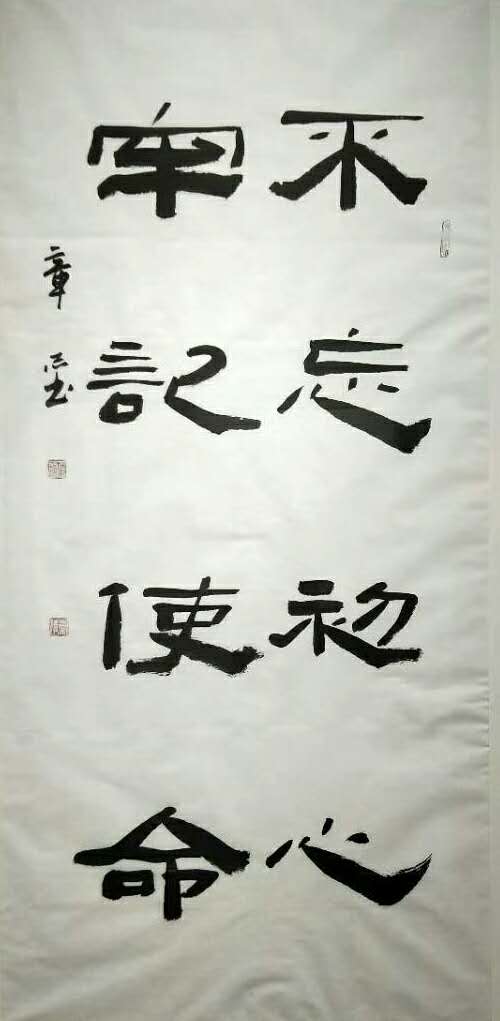 不忘初心
牢記使命
章